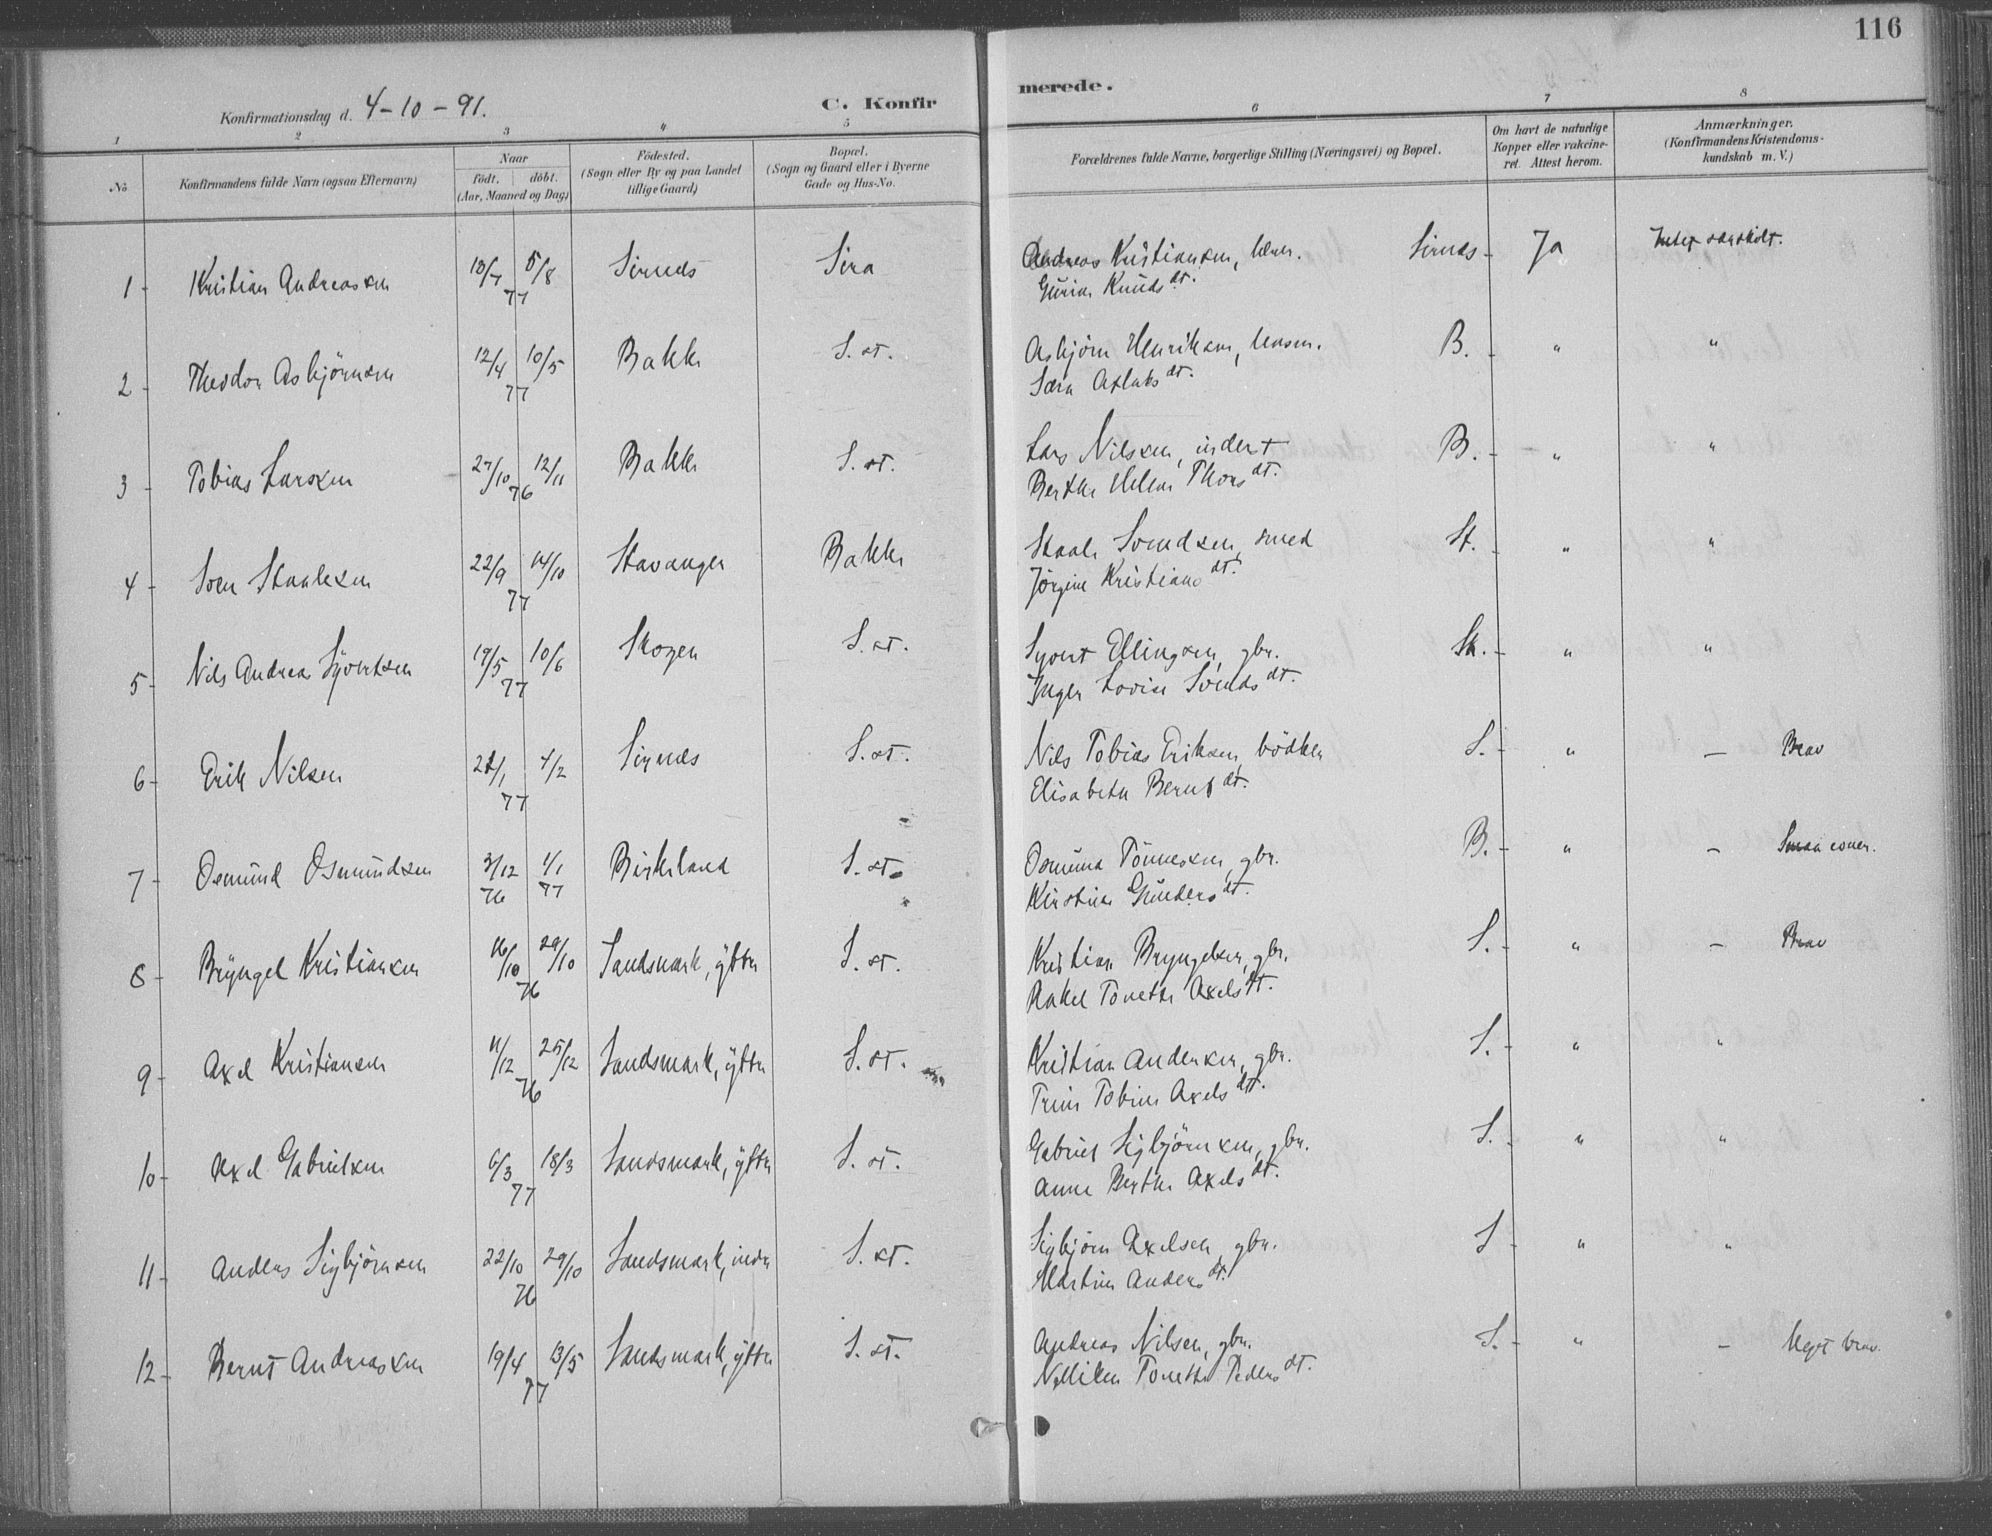 116
Konfirmationsdag d. 4-10-91. C. Konfir merede.
1 2 3 4 5 6 7 8
No Konfirmandens fulde Navn (ogsaa Efternavn)
Naar
födt. döbt.
(Aar, Maaned og Dag)
Födested.
(Sogn eller By og paa Landet
tillige Gaard)
Bopæl.
(Sogn og Gaard eller i Byerne
Gade og Hus-No.
Forældrenes fulde Navne, borgerlige Stilling (Næringsvei) og Bopæl.
Om havt de naturlige
Kopper eller vakcine-
ret. Attest herom.
Anmærkninger.
(Konfirmandens Kristendoms-
kundskab m. V.)
1 - Kristian Andreassen 13/7 5/8 Sirnes Sira Andreas Kristiansen, Sirnes - Ja Intet særskilt.
77 Gurine Knuds dt.
2 - Theodor Asbjörnsen 12/4 10/5 Bakke S. st. Asbjörn Henriksen, lensm. B. - " "
77 Sara Aslaks dt.
3 - Tobias Larssen 27/10 12/11 Bakke S. st. Lars Nilssen, inderst B. - " "
76 Berthe Helene Thors dt.
4 - Sven Staalesen 22/9 14/10 Stavanger Bakke Staale Svendsen, smed St. - " "
77 Jörgine Kristians dt.
5 - Nils Andreas Syvertsen 19/5 10/6 Skogen S. st. Syvert Ellingsen, gbr. Sk. - " "
77 Inger Lovise Svends dt.
6 - Erik Nilsen 21/1 4/2 Sirnes S. st. Nils Tobias Eriksen, bödker S. - " - Brav
77 Elisabeth Bernt dt.
7 - Osmund Osmundsen 3/12 1/1 Birkeland S. st. Osmund Tönnessen, gbr. B. - " - Smaa evner.
76 77 Kirstine Gunders dt.
8 - Bryngel Kristiansen 16/10 29/10 Sandsmark, yttre S. st. Kristian Bryngelsen, gbr. S. - " - Brav
76 Rakel Tonette Axels dt.
9 - Axel Kristiansen 11/12 25/12 Sandsmark, yttre S. st. Kristian Andersen, gbr. S. - " "
76 Trine Tobine Axels dt.
10 - Axel Gabrielsen 6/3 18/3 Sandsmark, yttre S. st. Gabriel Sigbjörnsen, gbr. S. - " "
77 Anne Berthe Axels dt.
11 - Anders Sigbjörnsen 22/10 29/10 Sandsmark, indre S. st. Sigbjörn Axelsen, gbr. S - " "
76 Martine Anders dt.
12 - Bernt Andreassen 19/4 13/5 Sandsmark, yttre S. st. Andreas Nilsen, gbr. S. - " - Meget brav.
77 Nelliken Tonette Peders dt.